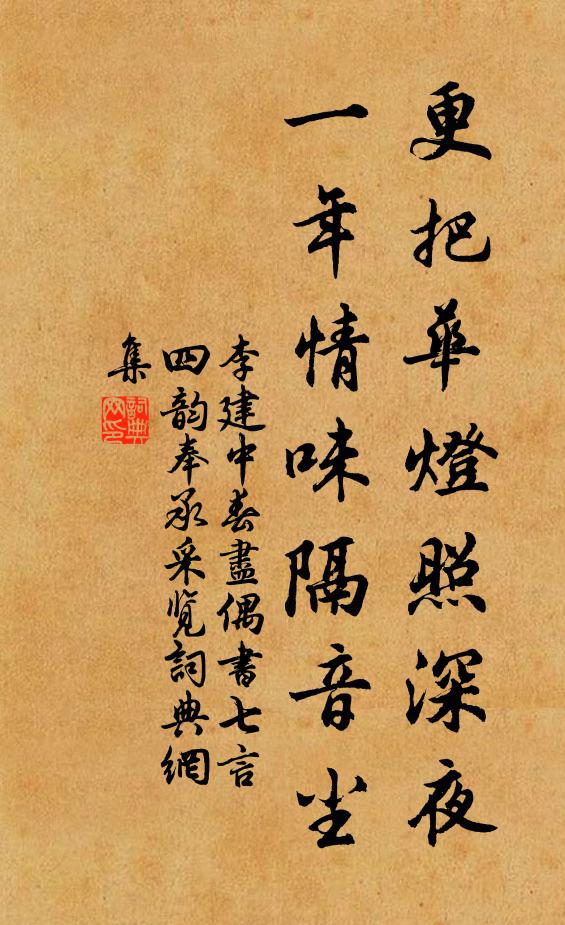 更把華燈照深夜
一年情味隔音尘
李建中春盡偶書七言
四韵奉承采览詞典網
集
詞典網印